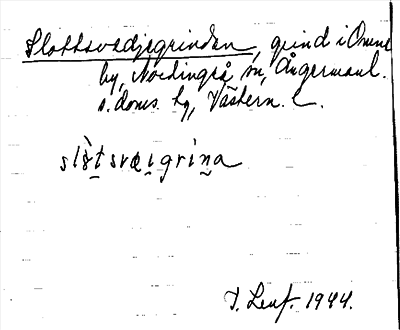 Slottsvedjegrinden, grind i Omne
by, Nordingrå sn, Ångermanl.
s. doms. hg, Västern. l.
slòtsvæigrina
D. Lenf. 1944.